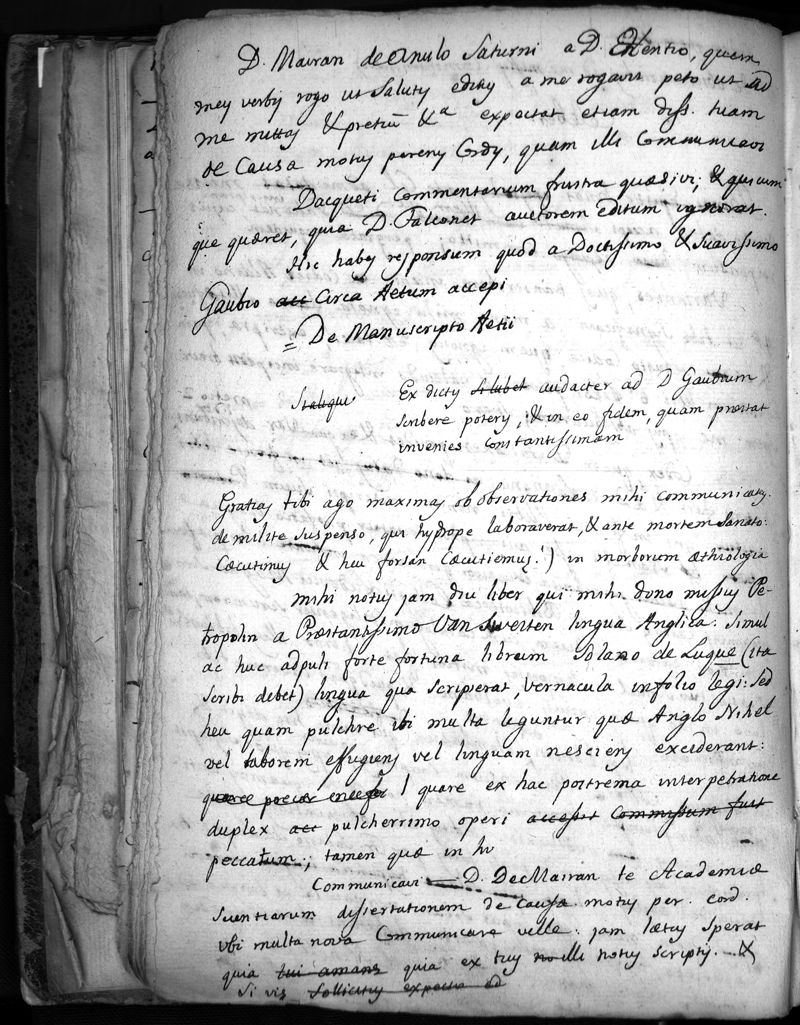 D. Mairan de Anulo Saturni a D. , quem
mey verbij rogo ut Saluty edity a me rogavit peto ut ad
me mittas & pretiū &a expectat etiam diss. tuam
de Causa motus pereny Cordy, quam illi Communicavi
Dacqueti Commentarium frustra quæsivi; & quicum
que quæret, quia D. Falconet auctorem editum ignorat.
Hic habes responsum quod a Doctissimo & Suavissimo
Gaubio acc Circa Aetum accepi
= De Manuscripto Aetii
Ex dicty si lubet audacter ad D Gaubium
scribere potery, & in eo fidem, quam præstat
invenies Constantissimam
Gratias tibi ago maximas ob observationes mihi communicatas
de milite suspenso, qui hydrope laboraverat, & ante mortem Sanato:
Cæcutimus & heu forsan Cæcutiemus!) in morborum æthiologia
Mihi notus jam diu liber qui mihi dono missus Pe-
tropolin a Præstantissimo Van Swieten lingua Anglica: Simul
ac huc adpuli forte fortuna librum Solano de Luque (ita
scribi debet) lingua qua scripserat, vernacula in folio legi: sed
heu quam pulchre ibi multa leguntur quæ Anglo Nihel
vel laborem effugiens vel linguam nesciens exciderant:
quare ex hac postrema interpretatione
duplex acc pulcherrimo operi accessit Commissum fuit
peccatum; tamen quæ in hv
Communicavi D. De Mairan te Academiæ
Scientiarum dissertationem de Causa motus per. cord.
ubi multa nova Communicare velle: jam lætus sperat
quia tui amans quia ex tuis illi notus scriptis. &
Si vis sollicitus expecto ad